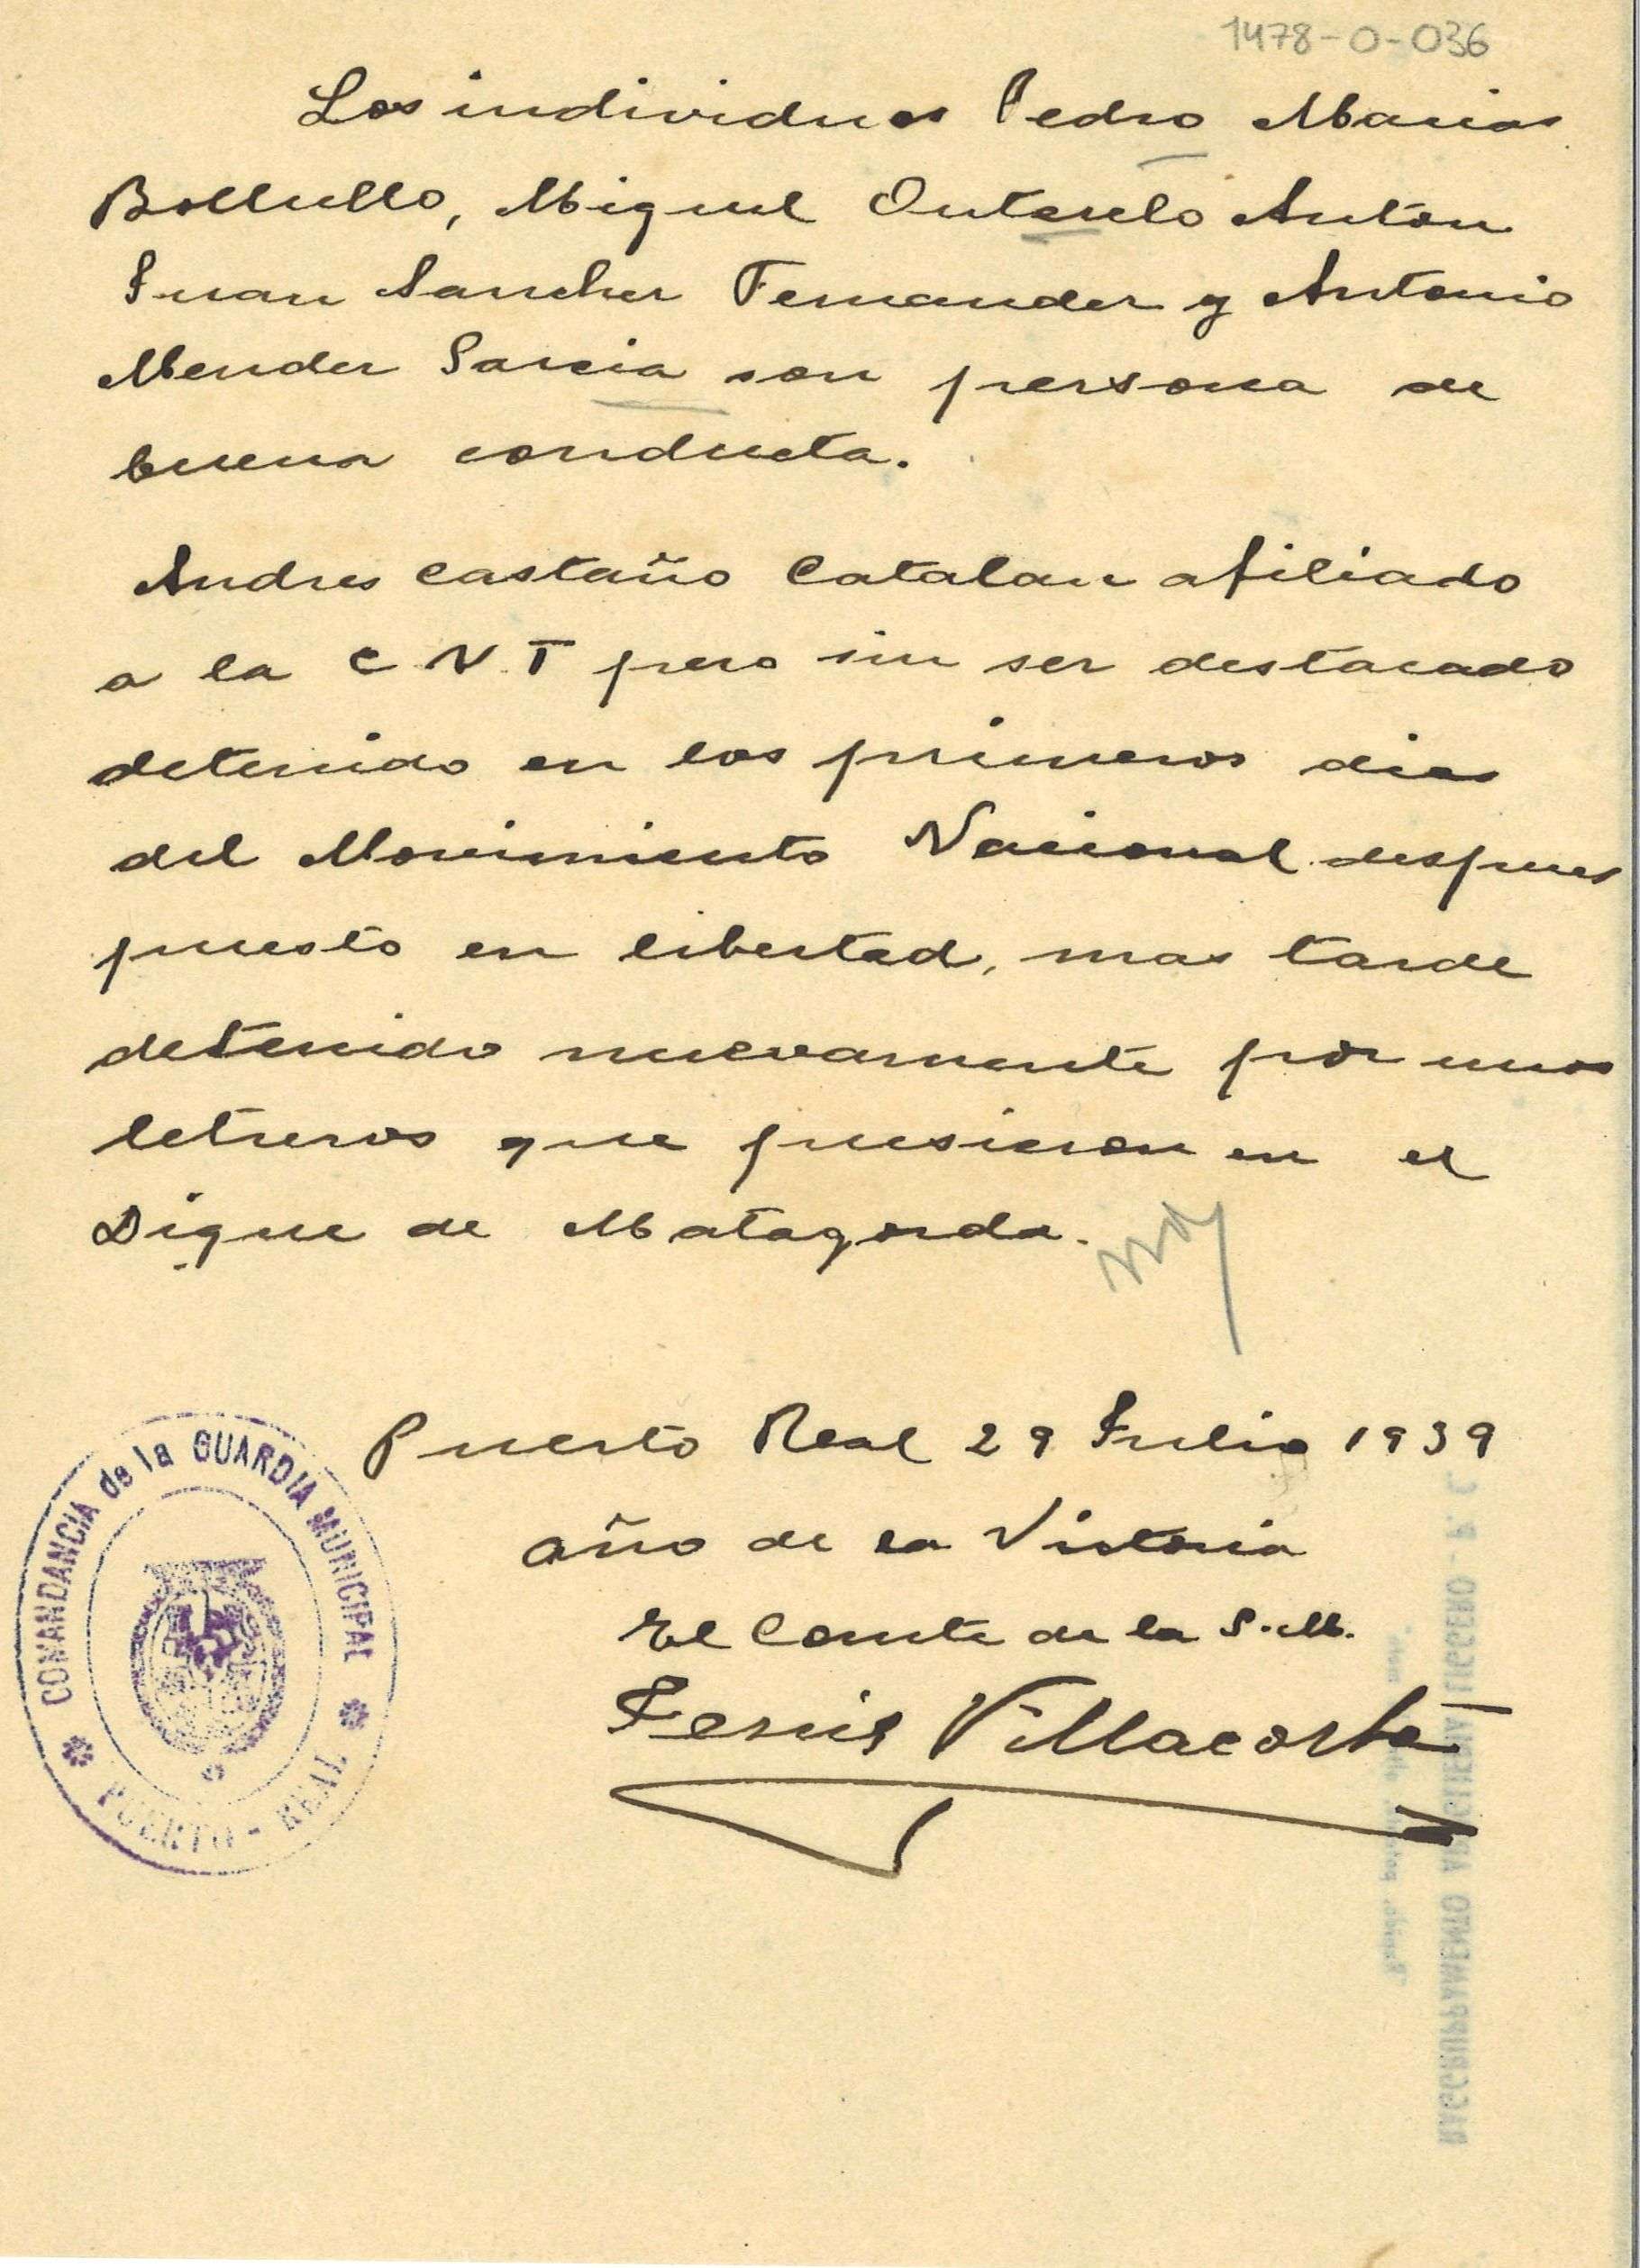 1478-0-036
Los individuos Pedro Macias
Bollullo, Miguel Outerelo Anton
Juan Sanchez Fernandez y Antonio
Mendez Garcia son persona de
buena conducta.
Andres Castaño Catalan afiliado
a la C N.T pero sin ser destacado
detenido en los primeros dias
del Movimiento Nacional despues
puesto en libertad, mas tarde
detenido nuevamente por unos
letreros que pusieron en el
Dique de Matagorda.
Puerto Real 29 Julio 1939
año de la Victoria
El Comte de la G.M.
Jesus Villacorta
COMANDANCIA de la GUARDIA MUNICIPAL
PUERTO - REAL
RAGGRUPPAMENTO ARTIGLIERIA LEGGERO - F. C.